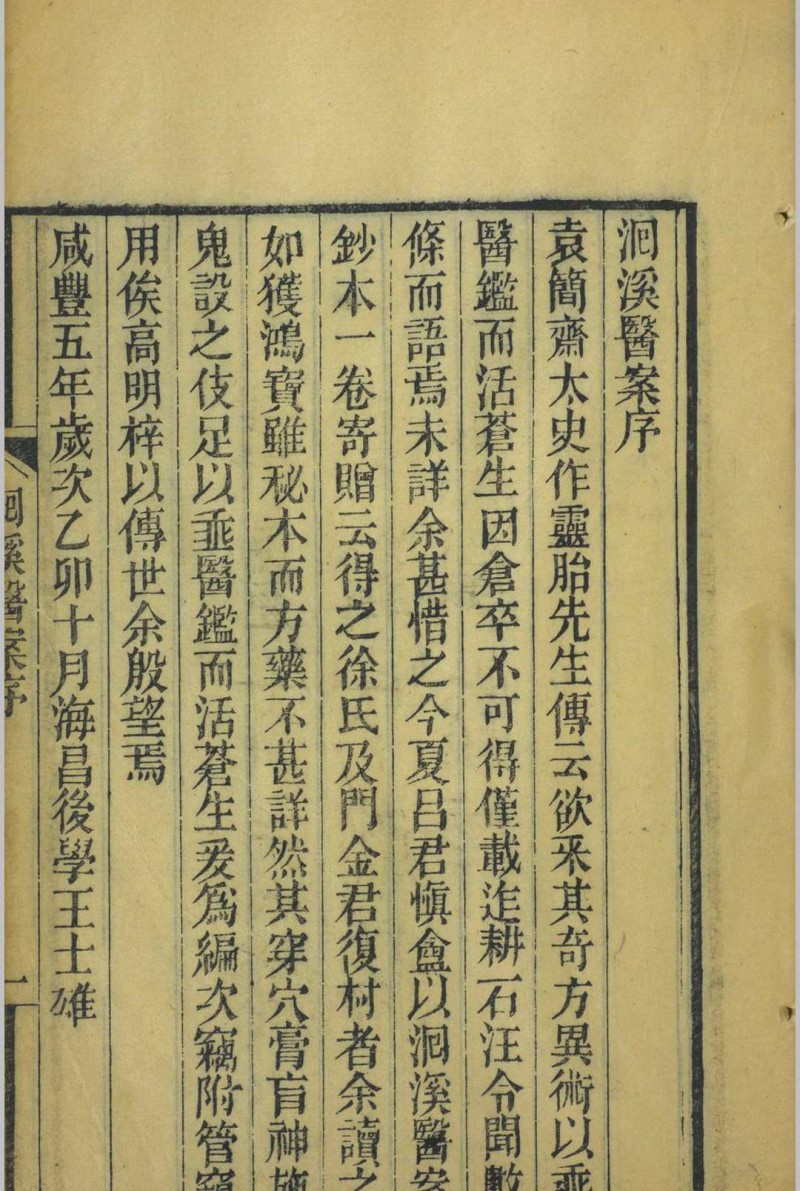 洄溪醫案序
袁簡齋太史作靈胎先生傳云欲釆其奇方異術以垂
醫鑑而活蒼生因倉卒不可得僅載迮耕石汪令聞數
條而語焉未詳余甚惜之今夏呂君愼盦以洄溪醫案
鈔本一卷寄贈云得之徐氏及門金君復村者余讀之
如獲鴻寶雖秘本而方藥不甚詳然其穿穴膏肓神施
鬼設之伎足以垂醫鑑而活蒼生爰爲編次竊附管窺
用俟高明梓以傳世余殷望焉
咸豐五年歲次乙卯十月海昌後學王士雄
洄溪醫案序
一